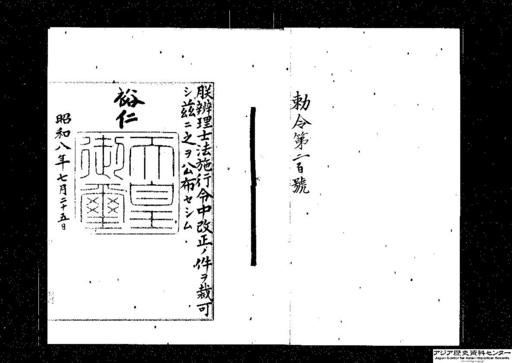 勅令第二百號
朕辨理士法施行令中改正ノ件ヲ裁可
シ茲ニ之ヲ公布セシム
裕仁
天皇
御璽
昭和八年七月二十五日
アジア歴史資料センター
Japan Center for Asian Historical Records